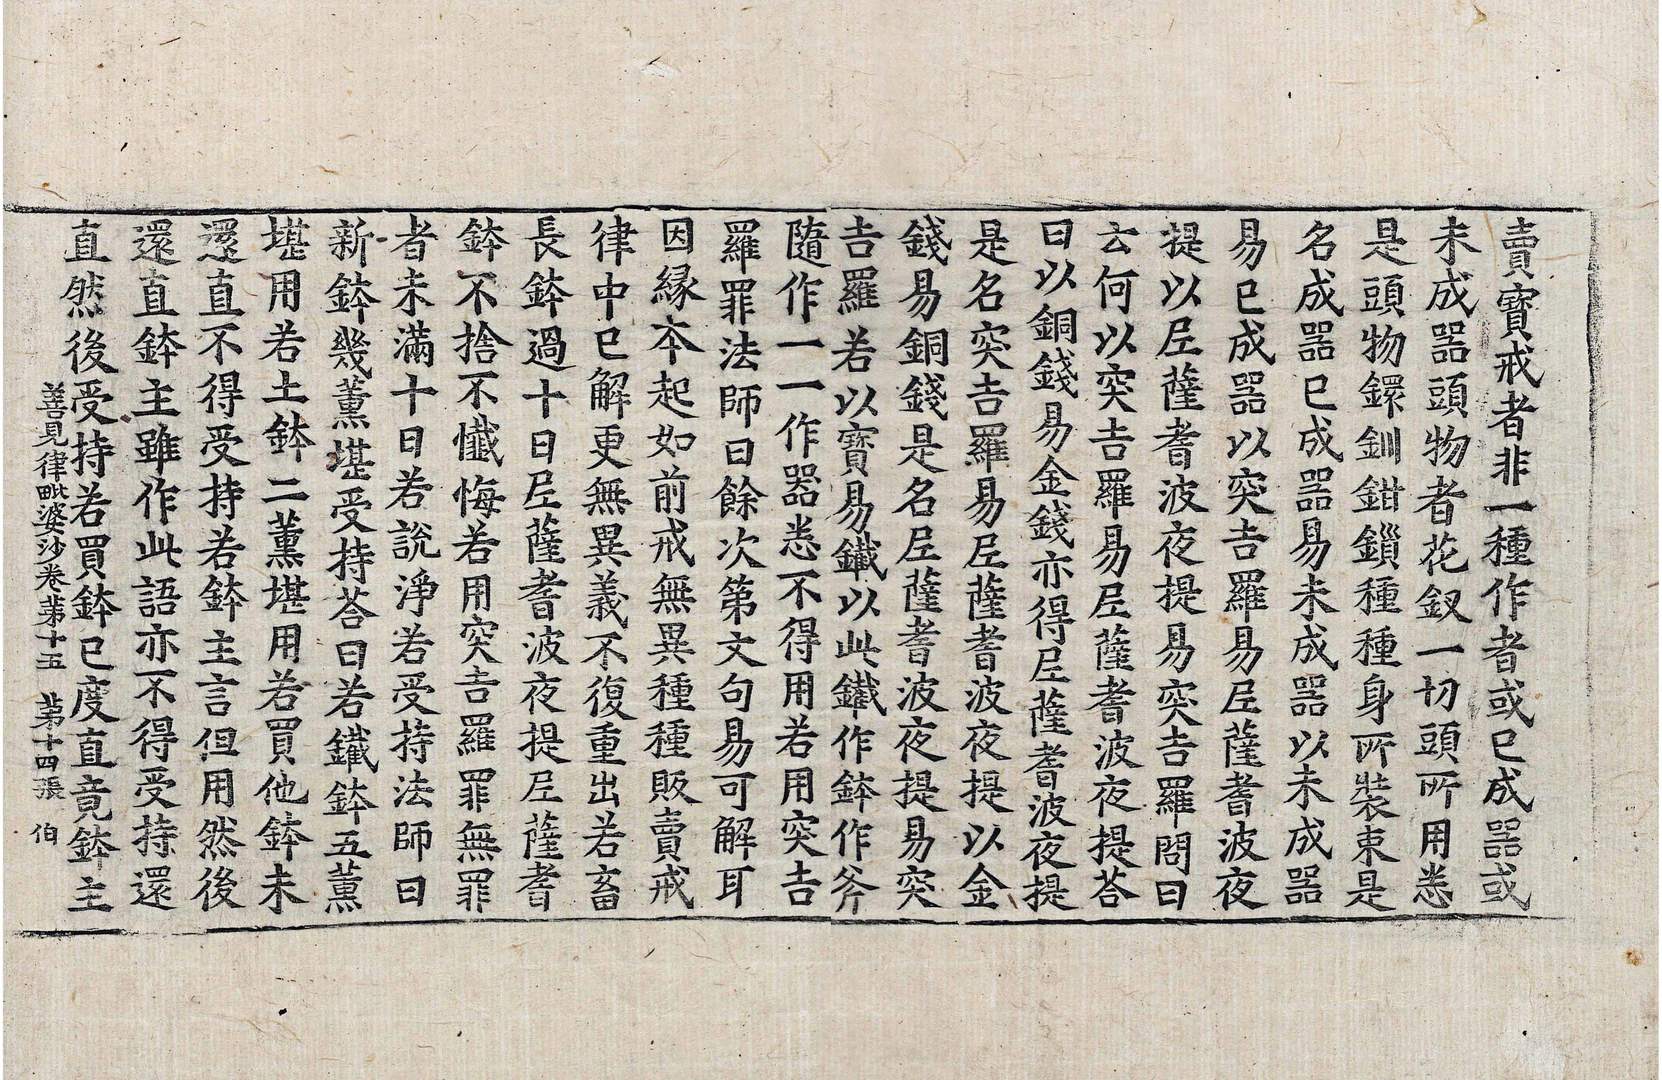 賣寶戒者非一種作者或已成器或
未成器頭物者花釵一切頭所用悉
是頭物鐶釧鉗鎻種種身所裝束是
名成器已成器易未成器以未成器
易已成器以突吉羅易尼薩耆波夜
提以尼薩耆波夜提易突吉羅問曰
云何以突吉羅易尼薩耆波夜提荅
曰以銅錢易金錢亦得尼薩耆波夜提
是名突吉羅易尼薩耆波夜提以金
錢易銅錢是名尼薩耆波夜提易突
吉羅若以寶易鐵以此鐵作鉢作斧
隨作一一作器悉不得用若用突吉
羅罪法師曰餘次第文句易可解耳
因緣本起如前戒無異種種販賣戒
律中已解更無異義不復重出若畜
長鉢過十日尼薩耆波夜提尼薩耆
鉢不捨不懺悔若用突吉羅罪無罪
者未滿十日若說淨若受持法師曰
新鉢幾薰堪受持荅曰若鐵鉢五薰
堪用若土鉢二薰堪用若買他鉢未
還直不得受持若鉢主言但用然後
還直鉢主雖作此語亦不得受持還
直然後受持若買鉢已度直竟鉢主
善見律毗婆沙卷苐十五　苐十四張　伯